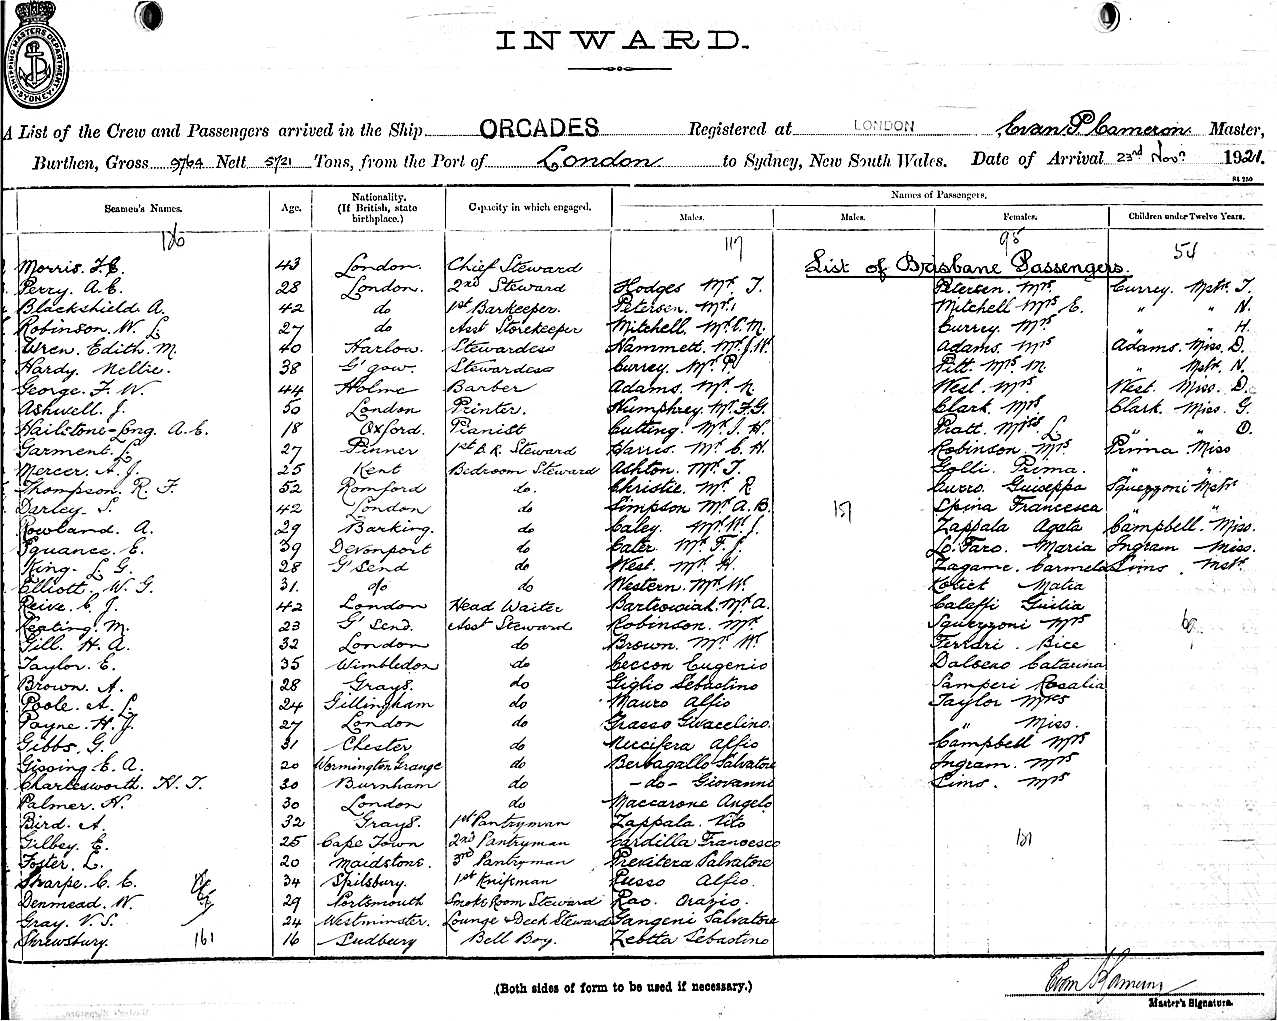 SHIPPING MASTERS DEPARTMENT SYDNEY
INWARD.
A List of the Crew and Passengers arrived in the Ship ORCADES Registered at LONDON Evan P. Cameron Master,
Burthen, Gross 9764 Nett 5721 Tons, from the Port of London to Sydney, New South Wales. Date of Arrival 23rd Novr 1921.
Seamen's Names. Age. Nationality. (If British, state birthplace.) Capacity in which engaged. Names of Passengers.
Males. Males. Females. Children under Twelve Years.
186 117 95 54
Morris. F.E. 43 London. Chief Steward List of Brisbane Passengers.
Perry. A.E. 28 London. 2nd Steward Hodges Mr. T. Petersen. Mrs. Currey. Mstr. T.
Blackshield A. 42 do 1st Barkeeper. Petersen. Mr. Mitchell Mrs E. " " N.
Robinson. W. L. 27 do Asst Storekeeper Mitchell. Mr. C. M. Currey. Mrs " " H.
Wren. Edith. M. 40 Harlow. Stewardess Hammett. Mr. J. W. Adams. Mrs Adams. Miss. D.
Hardy. Nellie. 38 G'gow. Stewardess Currey. Mr. P. Pitt. Mrs M. " Mstr. N.
George. F. W. 44 Holme Barber Adams. Mr. N. West. Mrs West. Miss. D.
Ashwell. J. 50 London Printer. Humphrey. Mr. F. G. Clark. Mrs Clark. Miss G.
Hailstone-Long. A. E. 18 Oxford. Pianist Cutting. Mr. S. H. Pratt. Miss L. " " O.
Garment. L. 27 Pinner 1st B.R. Steward Harris. Mr. C. H. Robinson. Mrs. Prima. Miss
Mercer. A. J. 25 Kent Bedroom Steward Ashton. Mr. T. Golli. Prima. " "
Thompson. R. F. 52 Romford do. Christie. Mr. R. Guiseppa Squezzoni Mstr.
Darley. S. 42 London do Simpson Mr. A. B. 157 Spina Francesca
Rowland. A. 29 Barking. do Caley. Mr. W. J. Zappala Agata Campbell. Miss.
Squance. E. 39 Devonport do Cater Mr. F. J. Lo Faro. Maria Ingram Miss.
King. L. G. 28 G'Send do West. Mr. H. Zagame. Carmela Sims. Mstr.
Elliott. W. G. 31. do do Western. Mr. W. Maria
Reive. C. J. 42 London Head Waiter Mr. A. Caleffi Guilia
Keating. M. 23 G'Send. Asst Steward Robinson. Mr. Squezzoni Mrs
Gill. H. A. 32 London do Brown. Mr. W. Ferrari. Bice
Taylor. E. 35 Wimbledon do Ceccon Eugenio Catarina
Brown. A. 28 Grays. do Giglio Sebastino Samperi Rosalia
Poole. A. L. 24 Gillingham do Mauro Alfio Taylor Mrs
Payne. H. J. 27 London do Grasso " Miss.
Gibbs. G. 31 Chester do Alfio Campbell Mrs
Gissing. E. A. 20 Wormington Grange do Berbagallo Salvatore Ingram. Mrs
Charlesworth. H. T. 30 Burnham do -do- Giovanni Sims. Mrs
Palmer. H. 30 London do Maccarone Angelo
Bird. A. 32 Grays. 1st Pantryman Zappala. Vito
Gilbey. E. 25 Cape Town 2nd Pantryman Cardilla Francesco
Foster. L. 20 Maidstone. 3rd Pantryman Salvatore
Sharpe. C. E. 34 Spilsbury. 1st Knifeman Russo Alfio.
Denmead. W. 29 Portsmouth Smoke Room Steward Rao. Orazio.
Gray. V. S. 24 Westminster. Lounge & Deck Steward Gangeni Salvatore
Shrewsbury. 161 16 Sudbury Bell Boy. Zeotta Sebastino
(Both sides of form to be used if necessary.)
Evan P Cameron
Master's Signature.